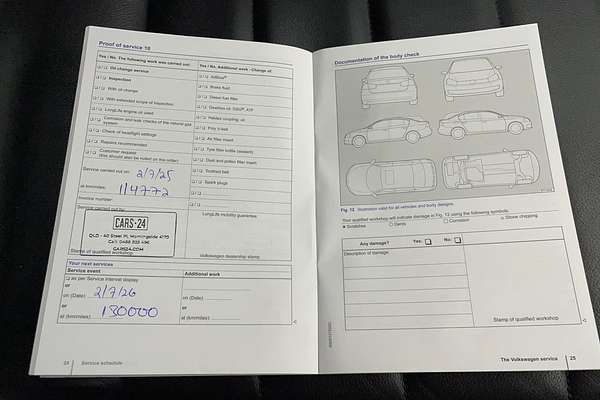 Proof of service 10
Yes / No. The following work was carried out:
Oil change service
Inspection
With oil change
With extended scope of inspection
LongLife engine oil used
Corrosion and leak checks of the natural gas
system
Check of headlight settings
Repairs recommended
Customer request
(this should also be noted on the order)
Service carried out on 2/7/25
at km/miles: 114772
Invoice number
Service carried out by
CARS-24
QLD - 40 Steel Pl, Morningside 4170
CARS24.COM
Stamp of qualified workshop
Yes / No. Additional work - Change of:
AdBlue®
Brake fluid
Diesel fuel filter
Haldex coupling, oil
Poly V-belt
Air filter insert
Tyre filler bottle (sealant)
Dust and pollen filter insert
Toothed belt
Spark plugs
LongLife mobility guarantee
Volkswagen dealership stamp
Your next services
Service event
Additional work
as per Service interval display
or
on (Date) 2/7/26
on (Date)
or
or
at (km/miles): 130000
at (km/miles)
24 Service schedule
Documentation of the body check
Fig. 12 Illustration valid for all vehicles and body designs.
Your qualified workshop will indicate damage in Fig. 12 using the following symbols:
Scratches
Dents
Corrosion
Stone chipping
Any damage? Yes: No:
Description of damage:
Stamp of qualified workshop
The Volkswagen service 25